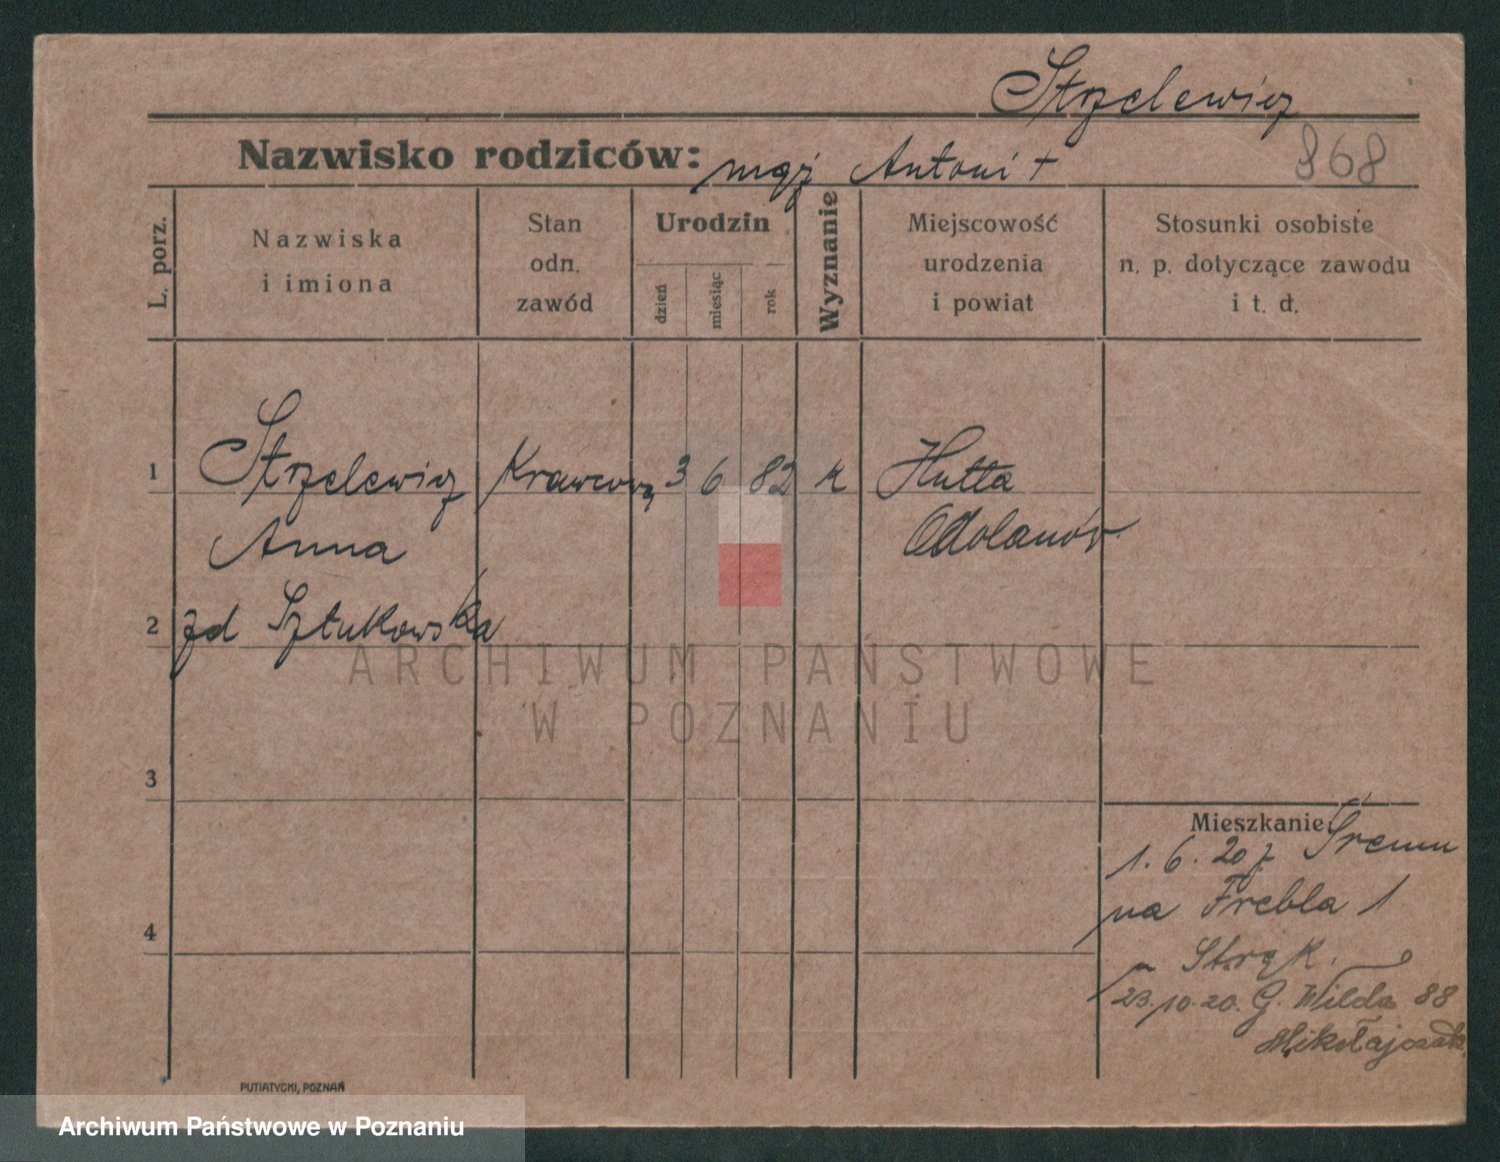 Strzelewicz
Nazwisko rodziców: mąż Antoni +
868
L. porz.
Nazwiska
i imiona
Stan
odn.
zawód
Urodzin
dzień
miesiąc
rok
Wyznanie
Miejscowość
urodzenia
i powiat
Stosunki osobiste
n. p. dotyczące zawodu
i t. d.
1 Strzelewicz Krawcową 3 6 82 k Hutta
Anna Odolanów
2 zd Sztukowska
3
4
Mieszkanie:
1.6.20 z Śremu
na Frebla 1
Strąk.
23.10.20. G. Wilda 88
Mikołajczak
PUTIATYCKI, POZNAŃ
ARCHIWUM PAŃSTWOWE
W POZNANIU
Archiwum Państwowe w Poznaniu